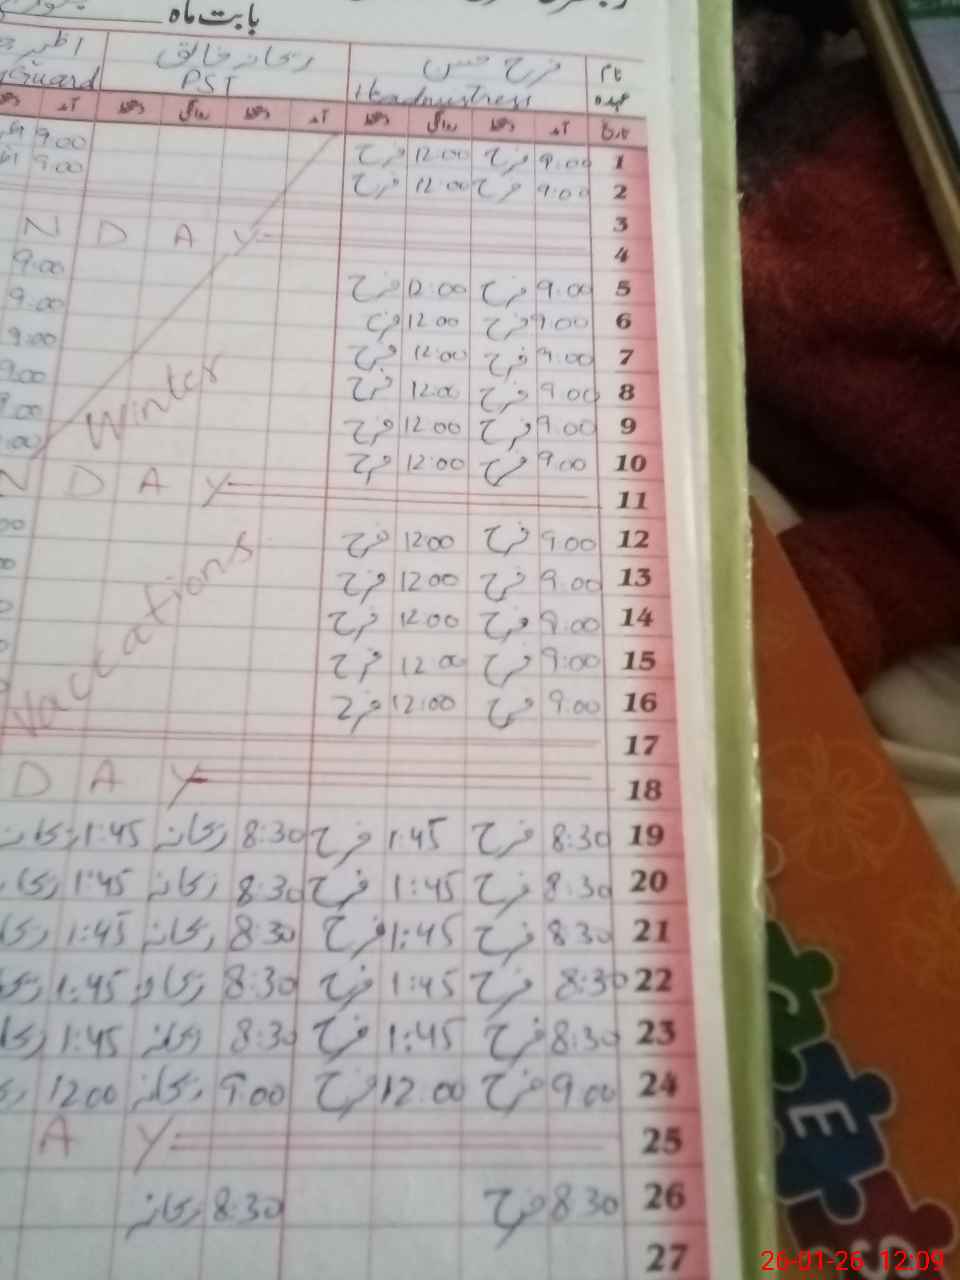 بابت ماہ
نام فرح حسن ریحانہ خالق
عہدہ Headmistress PST Guard
تاریخ آمد دستخط روانگی دستخط آمد دستخط روانگی دستخط آمد
1 9:00 فرح 12:00 فرح 9:00
2 9:00 فرح 12:00 فرح 9:00
3
N D A Y
4
5 9:00 فرح 12:00 فرح 9:00
6 9:00 فرح 12:00 فرح 9:00
7 9:00 فرح 12:00 فرح 9:00
8 9:00 فرح 12:00 فرح 9:00
Winter
9 9:00 فرح 12:00 فرح 9:00
10 9:00 فرح 12:00 فرح :00
11 N D A Y
12 9:00 فرح 12:00 فرح 00
13 9:00 فرح 12:00 فرح
Vaccations
14 9:00 فرح 12:00 فرح
15 9:00 فرح 12:00 فرح
16 9:00 فرح 12:00 فرح
17
18 D A Y
19 8:30 فرح 1:45 فرح 8:30 ریحانہ 1:45
20 8:30 فرح 1:45 فرح 8:30 ریحانہ 1:45
21 8:30 فرح 1:45 فرح 8:30 ریحانہ 1:45
22 8:30 فرح 1:45 فرح 8:30 ریحانہ 1:45
23 8:30 فرح 1:45 فرح 8:30 ریحانہ 1:45
24 9:00 فرح 12:00 فرح 9:00 ریحانہ 12:00
25 A Y
26 8:30 فرح 8:30 ریحانہ
27
C
E
S
26-01-26 12:09